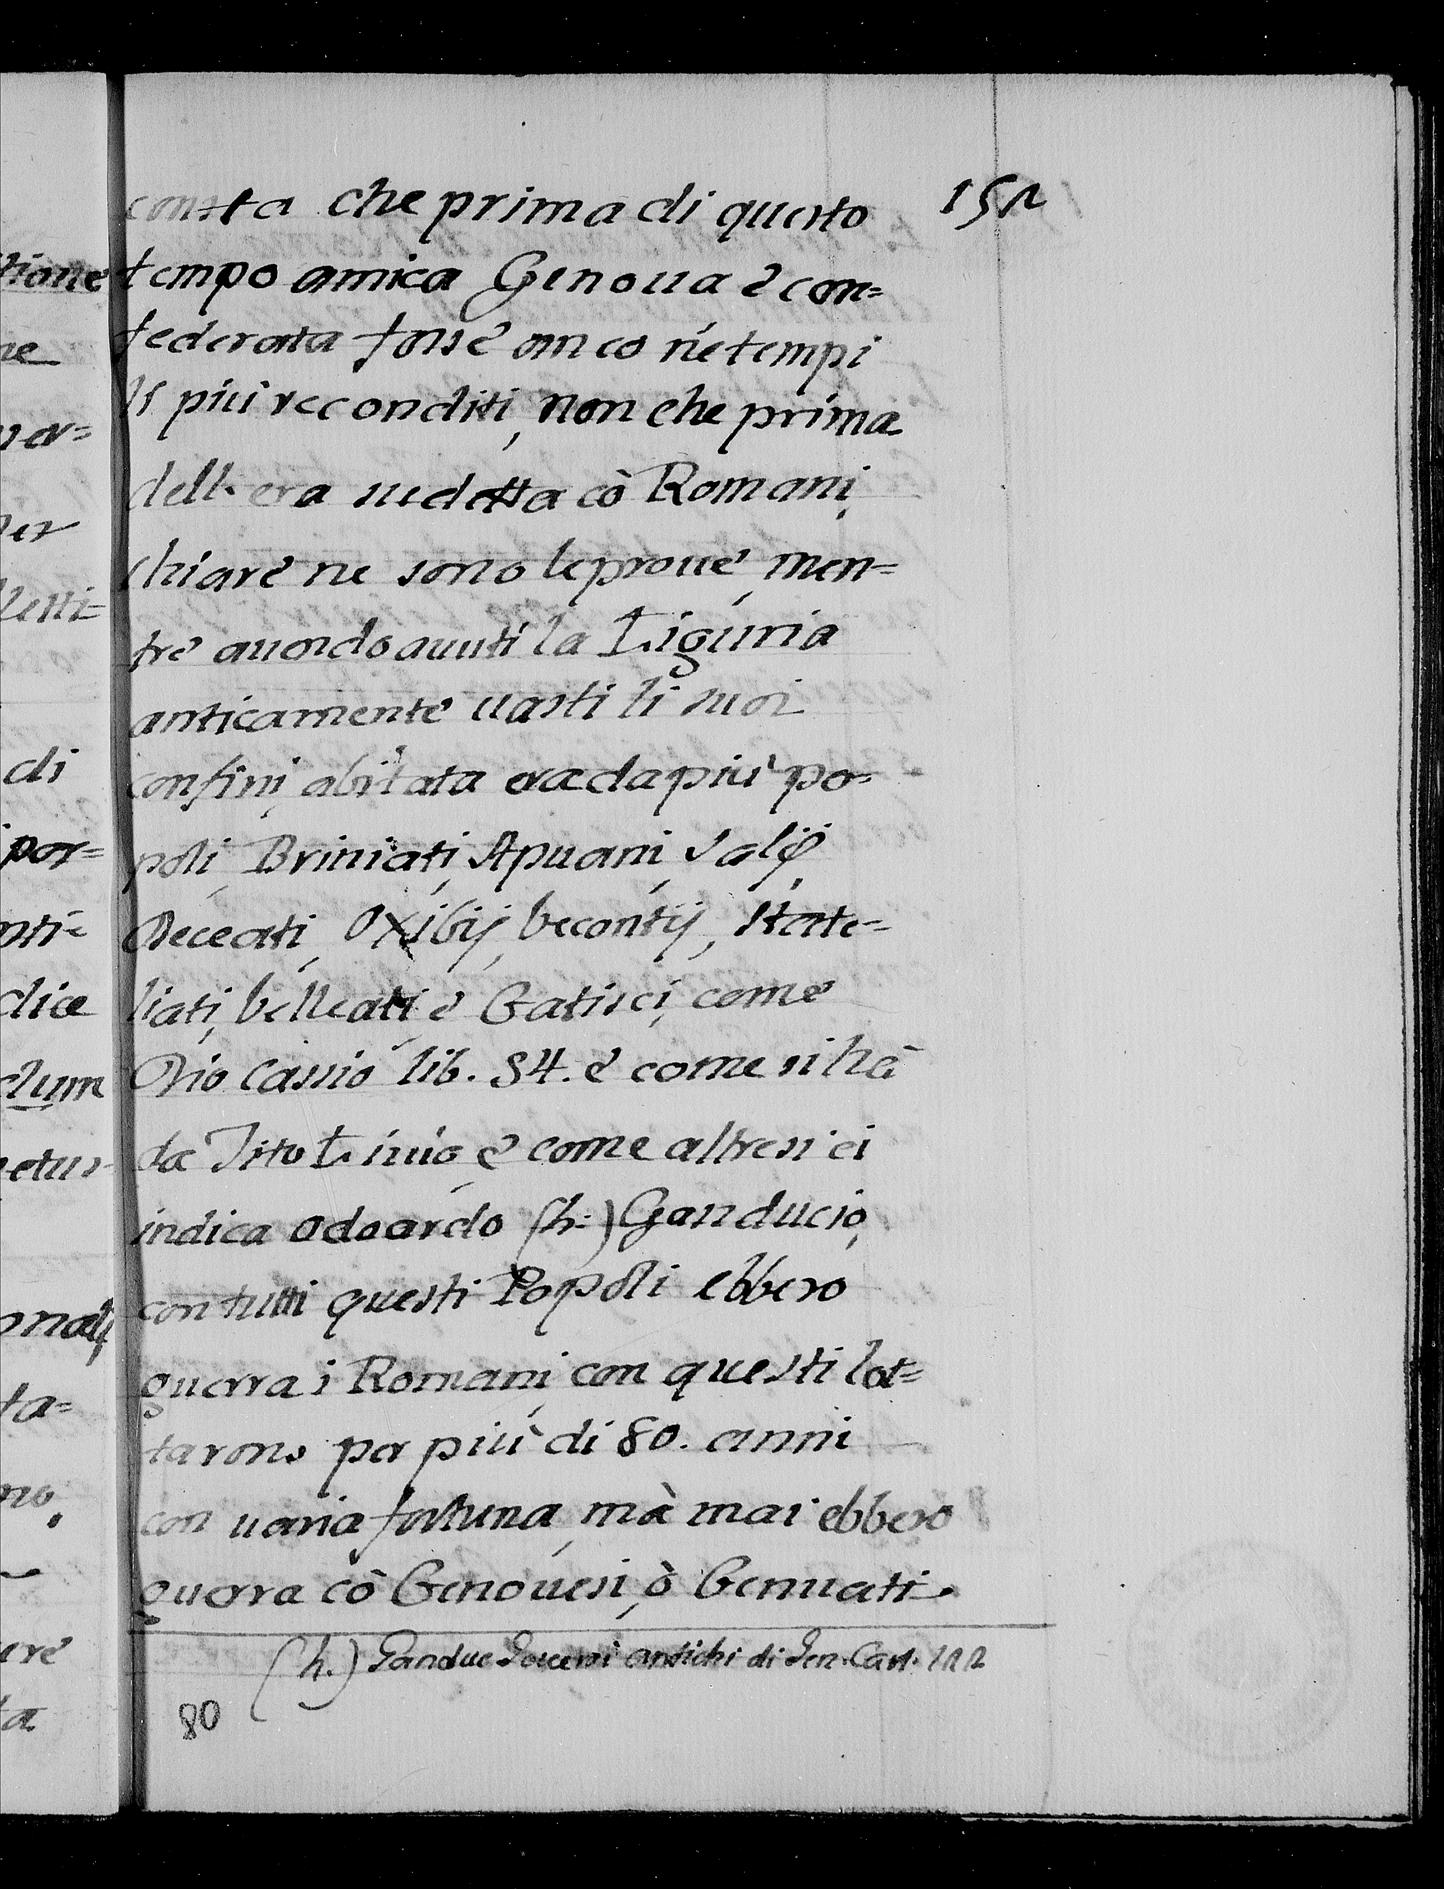 152
consta che prima di questo
tempo amica Genoua è con=
federata fosse anco ne tempi
li più reconditi, non che prima
dell'era sudetta cò Romani,
chiare ne sono le proue, men=
tre auendo auuti la Liguria
anticamente uasti li suoi
confini, abitata era da più po=
poli, Briniati, Apuani, Salij,
Deceati, Oxibij, becontij, State=
liati, belleati è Gatisci, come
Dio Cassio lib. 54. è come si hà
da Tito Liuio, è come altresi ci
indica Odoardo (h:) Ganducio,
con tutti questi Popoli ebbero
guerra i Romani, con questi lot=
tarono per più di 80. anni
con uaria fortuna, mà mai ebbero
guerra cò Genouesi, ò Genuati
(h.) Ganduc antichi di Gen. Cart. 122
80
tione
ne
per
di
por=
nti=
dice
ta=
no.
ta